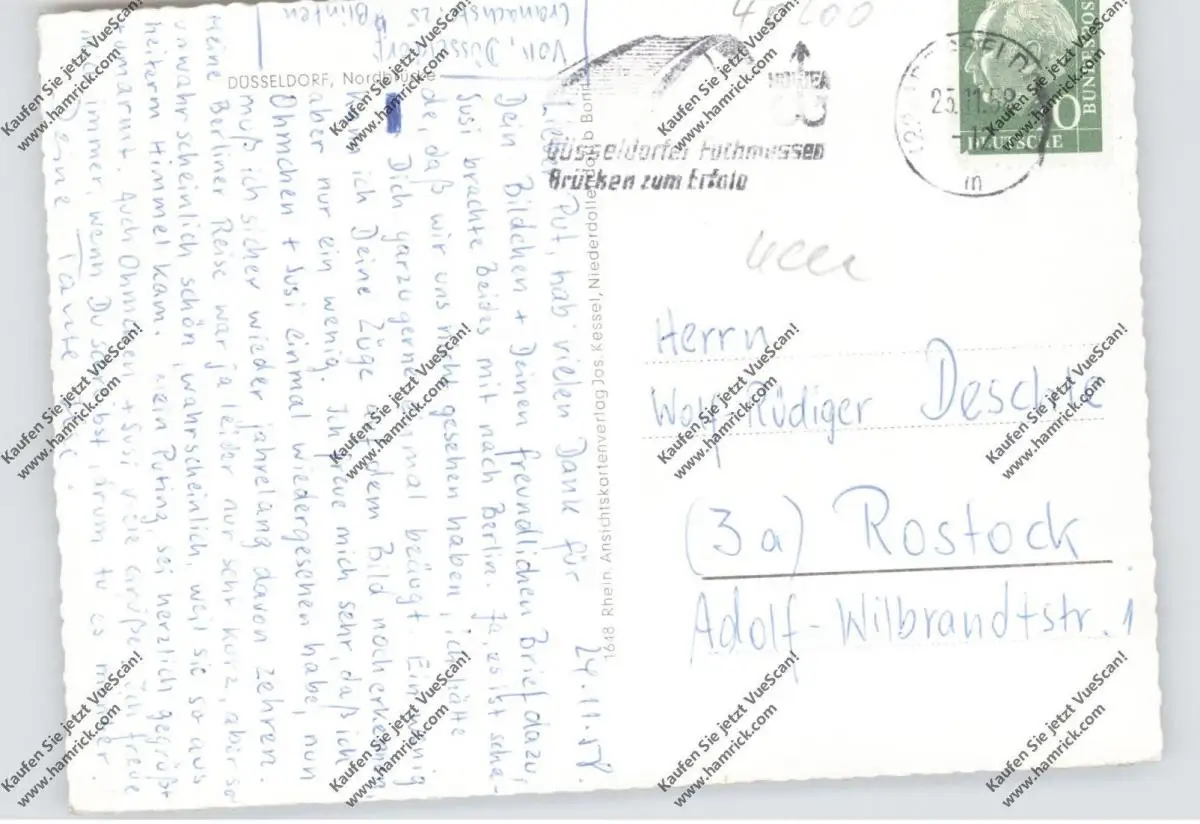 Von, Düsseldorf
Cranachstr. 25
DÜSSELDORF, Nordbrücke
24.11.58.
Lieber Put, hab vielen Dank für
Dein Bildchen + Deinen freundlichen Brief dazu,
Susi brachte beides mit nach Berlin. Ja, es ist scha-
de, daß wir uns nicht gesehen haben, ich hätte
Dich gar zu gerne einmal beäugt. Ein wenig
kann ich Deine Züge auf dem Bild noch erkennen,
aber nur ein wenig. Ich freue mich sehr, daß ich
Ohmchen + Susi einmal wiedergesehen habe, nun
muß ich sicher wieder jahrelang davon zehren.
Meine Berliner Reise war ja leider nur sehr kurz, aber so
unwahrscheinlich schön, wahrscheinlich, weil sie so aus
heiterm Himmel kam. Mein Puting, sei herzlich gegrüßt
+ umarmt. Auch Ohmchen + Susi viele Grüße. Ich freue
mich immer, wenn Du schreibst, drum tu es
Deine Tante
1618 Rhein. Ansichtskartenverlag Jos. Kessel, Niederdollendorf b Bonn
Düsseldorfer Fachmessen
Brücken zum Erfolg
25.11.58
DEUTSCHE
BUNDESPOST
Herrn
Wolf-Rüdiger Deschle
(3a) Rostock
Adolf-Wilbrandtstr. 1
Kaufen Sie jetzt VueScan!
www.hamrick.com